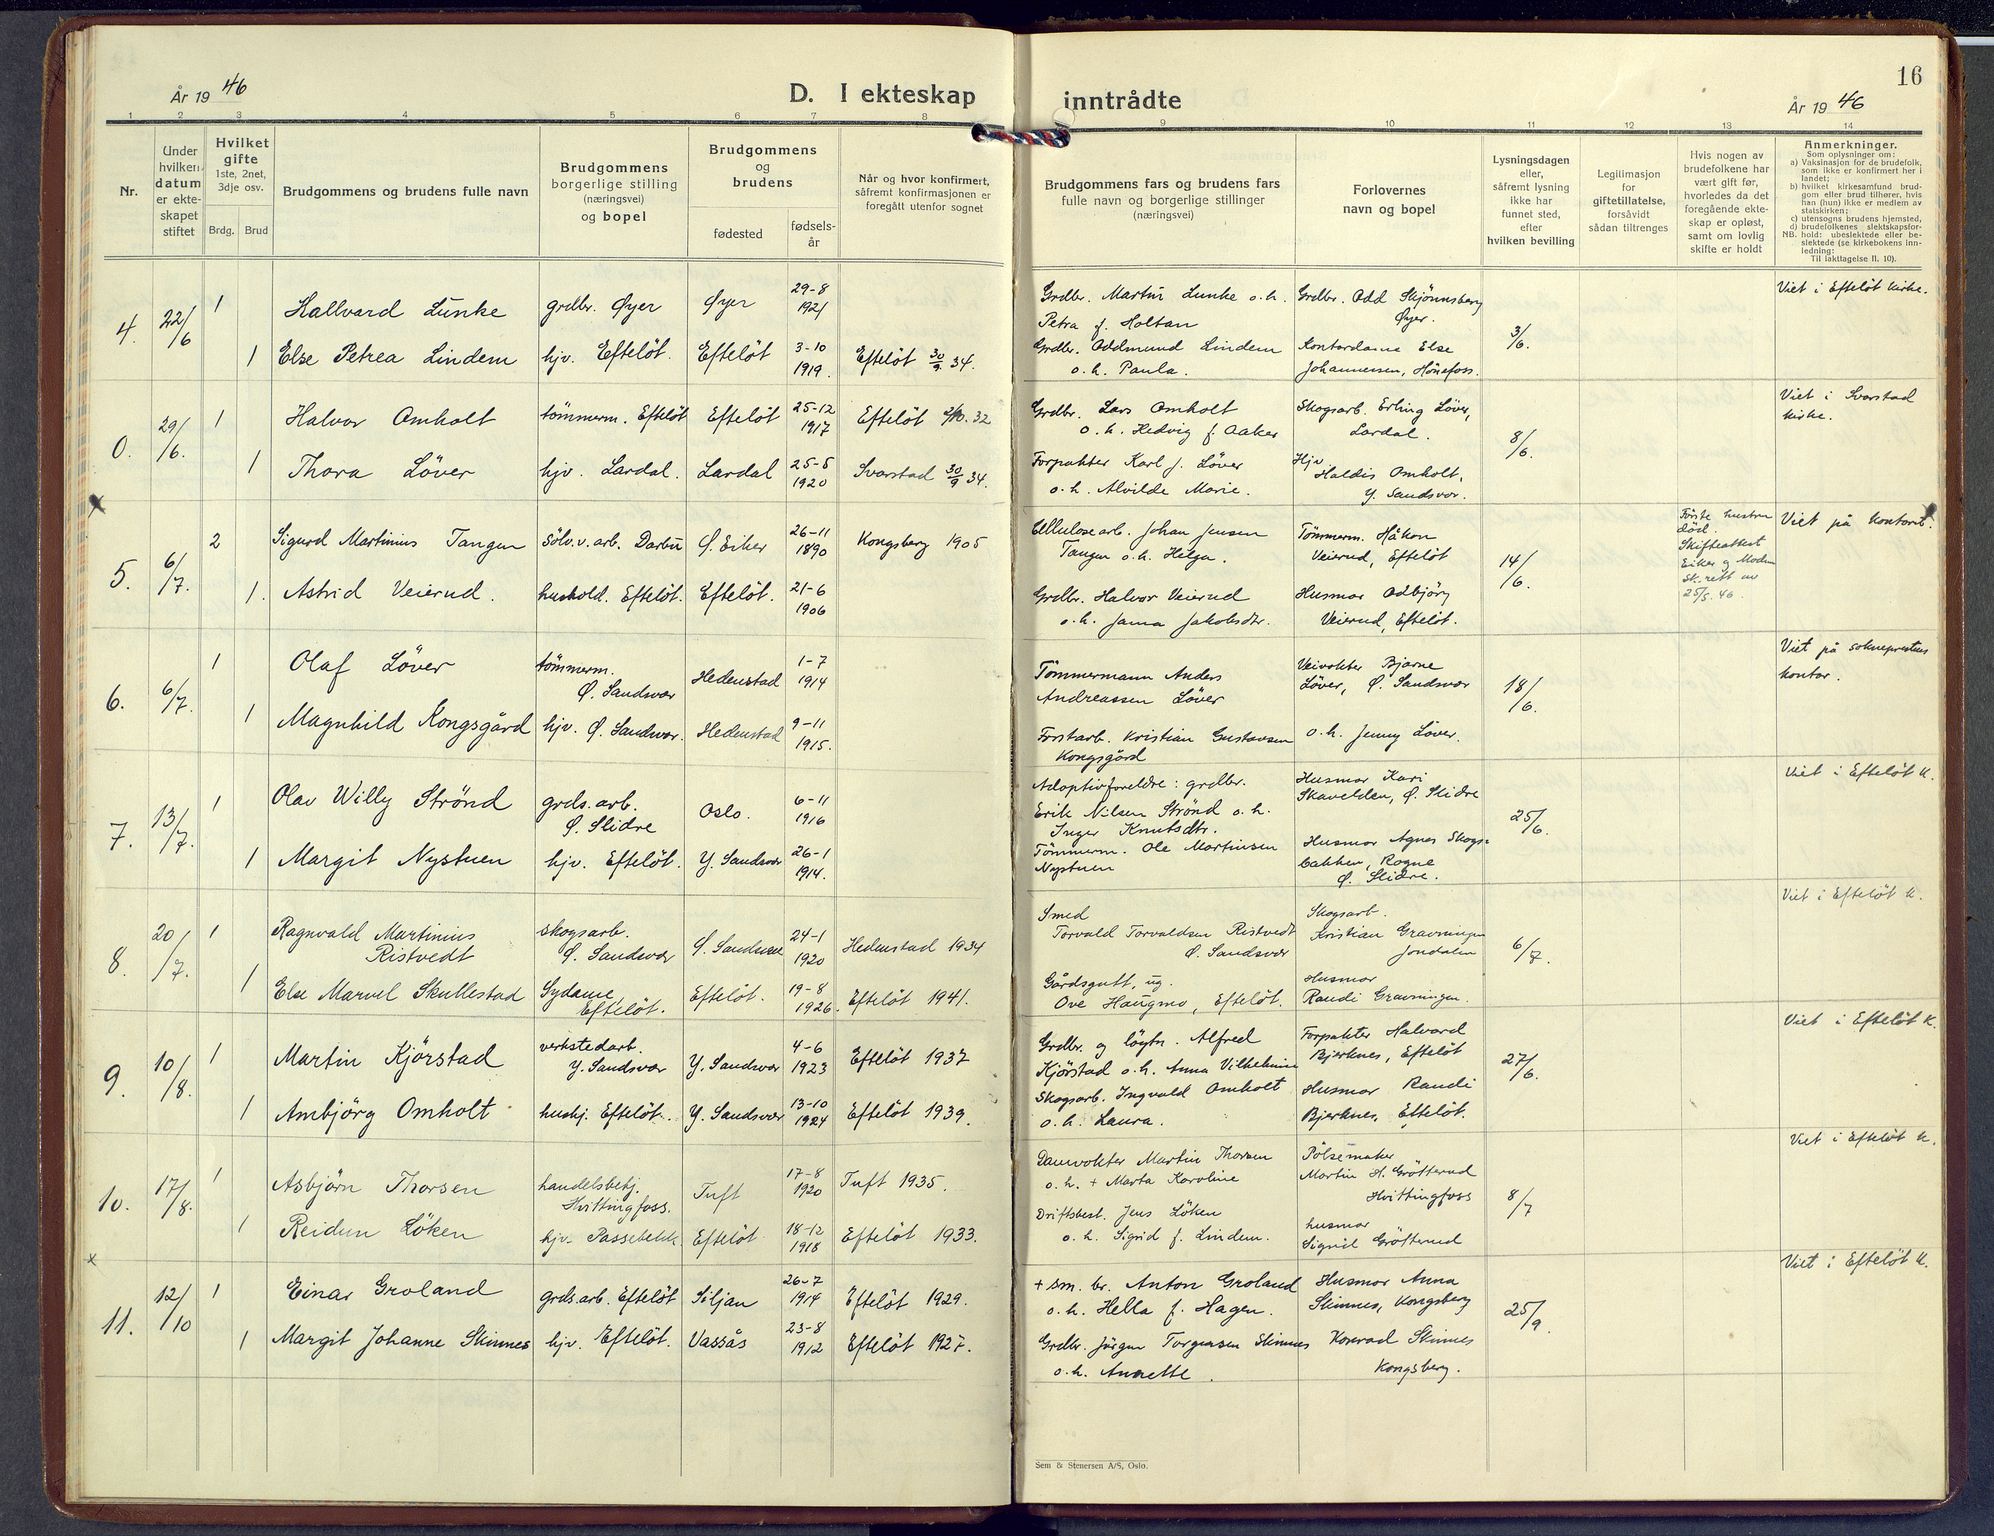 År 1946
D. I ekteskap
inntrådte
16
År 1946
1 2 3 4 5 6 7 8 9 10 11 12 13 14
Nr.
Under hvilken datum er ekteskapet stiftet
Hvilket gifte 1ste, 2net, 3dje osv.
Brdg. Brud
Brudgommens og brudens fulle navn
Brudgommens borgerlige stilling (næringsvei) og bopel
Brudgommens og brudens
fødested
fødselsår
Når og hvor konfirmert, såfremt konfirmasjonen er foregått utenfor sognet
Brudgommens fars og brudens fars fulle navn og borgerlige stillinger (næringsvei)
Forlovernes navn og bopel
Lysningsdagen eller, såfremt lysning ikke har funnet sted, efter hvilken bevilling
Legitimasjon for giftetillatelse, forsåvidt sådan tiltrenges
Hvis nogen av brudefolkene har vært gift før, hvorledes da det foregående ekteskap er opløst, samt om lovlig skifte er holdt
Anmerkninger.
Som oplysninger om:
a) Vaksinasjon for de brudefolk, som ikke er konfirmert her i landet;
b) hvilket kirkesamfund brudgom eller brud tilhører, hvis han (hun) ikke er medlem av statskirken;
c) utensogns brudens hjemsted,
d) brudefolkenes slektskapsforhold: ubeslektede eller beslektede (se kirkebokens innledning:
NB.
Til iakttagelse II. 10).
4. 22/6 1 Hallvard Lunke grdbr. Øyer Øyer 29-8 1921
1 Else Petrea Lindem hjv. Efteløt. Efteløt 3-10 1919. Efteløt 30/9 34.
Grdbr. Martin Lunke o.h.
Petra f. Holtan
Grdbr. Oddmund Lindem
o.h. Paula.
Grdbr. Odd Skjönnsberg
Øyer.
Kontordame Else
Johannessen, Hönefoss.
3/6.
Viet i Efteløt kirke.
0. 29/6. 1 Halvor Omholt tömmerm. Efteløt Efteløt 25-12 1917 Efteløt 2/10. 32
1 Thora Löver hjv. Lardal. Lardal 25-5 1920 Svarstad 30/9 34.
Grdbr. Lars Omholt
o.h. Hedvig f. Aaker
Forpakter Karl J. Löver
o.h. Alvilde Marie.
Skogsarb. Erling Löver,
Lardal.
Hjv
Haldis Omholt,
Y. Sandsvær.
8/6.
Viet i Svarstad
kirke.
x
5. 6/7. 2 Sigurd Martinius Tangen Sölv.v. arb. Darbu Ø. Eiker 26-11 1890 Kongsberg 1905
1. Astrid Veierud. hushold. Efteløt. Efteløt. 21-6 1906
Cellulosearb. Johan Jensen
Tangen o.h. Helga.
Grdbr. Halvor Veierud
o.h. Jama Jakobsdtr.
Tömmerm. Håkon
Veierud, Efteløt
Husmor Odbjörg
Veierud, Efteløt.
14/6.
Förste hustru
död.
Skifteattest
Eiker og Modum
sk.rett av
25/5. 46.
Viet på kontoret.
6. 6/7. 1 Olaf Löver tömmerm. Ø. Sandsvær Hedenstad 1-7 1914
1 Magnhild Kongsgård hjv. Ø. Sandsvær. Hedenstad 9-11 1915.
Tömmermann Anders
Andreassen Löver
Forstarb. Kristian Gustavsen
Kongsgård
Veivokter Bjarne
Löver, Ø. Sandsvær
o.h. Jenny Löver.
18/6.
Viet på sokneprestens
kontor.
7. 13/7. 1 Olav Willy Strönd grds.arb. Ø. Slidre Oslo. 6-11 1916
1 Margit Nystuen hjv. Efteløt. Y. Sandsvær 26-1 1914.
Adoptivforeldre: grdbr.
Erik Nilsen Strönd o.h.
Inger Knutsdtr.
Tömmerm. Ole Martinsen
Nystuen
Husmor Kari
Skavelden, Ø. Slidre
Husmor Agnes Skogs-
bakken, Rogne
Ø. Slidre.
25/6.
Viet i Efteløt K.
8. 20/7. 1 Ragnvald Martinius Ristvedt skogsarb. Ø. Sandsvær Ø. Sandsvær 24-1 1920 Hedenstad 1934
1 Else Marvel Skullestad Sydame, Efteløt. Efteløt. 19-8 1926. Efteløt 1941.
Smed
Torvald Torvaldsen Ristvedt
Ø. Sandsvær
Gårdsgutt, ug.
Ove Haugmo, Efteløt.
Skogsarb.
Kristian Gravningen
Jondalen
Husmor
Randi Gravningen.
6/7.
Viet i Efteløt K.
9. 10/8. 1 Martin Kjörstad verkstedarb. Y. Sandsvær Y. Sandsvær 4-6 1923 Efteløt 1937
1 Ambjörg Omholt hushj. Efteløt. Y. Sandsvær 13-10 1924 Efteløt 1939.
Grdbr. og löytn. Alfred
Kjörstad o.h. Anna Vilhelmine
Skogsarb. Ingvald Omholt
o.h. Laura.
Forpakter Halvard
Bjerknes, Efteløt
Husmor Randi
Bjerknes, Efteløt.
27/6.
Viet i Efteløt K.
10. 17/8. 1 Asbjörn Thorsen handelsbetj. Hvittingfoss. Tuft 17-8 1920 Tuft 1935.
1 Reidun Löken hjv. Passebekk Efteløt 18-12 1918 Efteløt 1933.
Damvokter Martin Thorsen
o.h. + Marta Karoline
Driftsbest. Jens Löken
o.h. Sigrid f. Lindem.
Pölsemaker
Martin H. Grötterud
Hvittingfoss
husmor
Sigrid Grötterud
8/7
Viet i Efteløt K.
x
11. 12/10 1 Einar Groland grds.arb. Efteløt Siljan 26-7 1914 Efteløt 1929.
1 Margit Johanne Skinnes hjv. Efteløt. Vassås 23-8 1912 Efteløt 1927.
+ sm. br. Anton Groland
o.h. Hella f. Hagen.
Grdbr. Jörgen Torgersen Skinnes
o.h. Annette.
Husmor Anna
Skinnes, Kongsberg
Konrad Skinnes
Kongsberg.
25/9.
Viet i Efteløt K.
Sem & Stenersen A/S, Oslo.